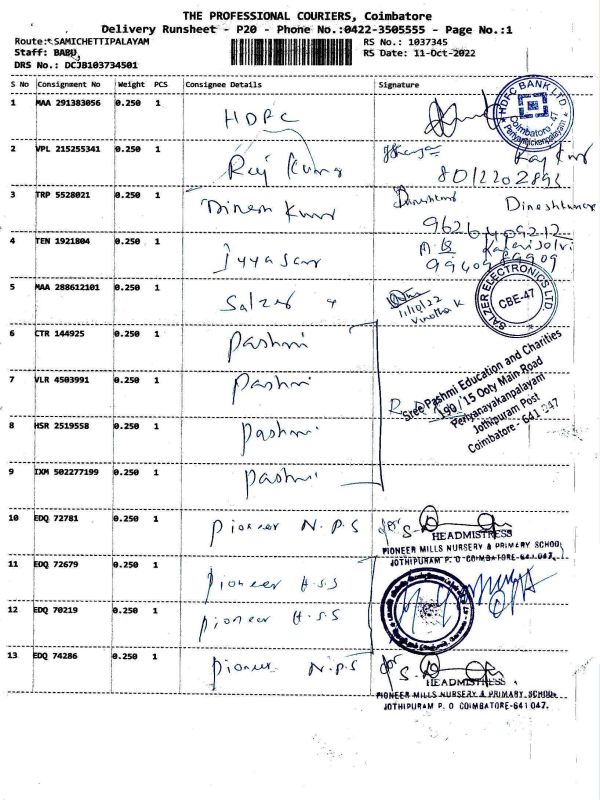 THE PROFESSIONAL COURIERS, Coimbatore
Delivery Runsheet - P20 - Phone No.:0422-3505555 - Page No.:1
Route: SAMICHETTIPALAYAM
RS No.: 1037345
Staff: BABU
RS Date: 11-Oct-2022
DRS No.: DCJB103734501
S No Consignment No Weight PCS Consignee Details Signature
1 MAA 291383056 0.250 1 HDFC
HDFC BANK LTD. Coimbatore-47 Periyanaickenpalayam
2 VPL 215255341 0.250 1 Raj Kumar Raj Kumar
3 TRP 5528021 0.250 1 Dinesh Kumar Dineshkumar Dineshkumar
4 TEN 1921804 0.250 1 Iyyasamy
5 MAA 288612101 0.250 1 Salzer
11/10/22
Vinotha K
SALZER ELECTRONICS LTD. CBE-47
6 CTR 144925 0.250 1 Pashmi
7 VLR 4503991 0.250 1 Pashmi
Sree Pashmi Education and Charities
190/15 Ooty Main Road
Periyanayakanpalayam
Jothipuram Post
Coimbatore - 641 047
8 HSR 2519558 0.250 1 Pashmi
9 IXM 502277199 0.250 1 Pashmi
10 EDQ 72781 0.250 1 Pioneer N.P.S for
HEADMISTRESS
PIONEER MILLS NURSERY & PRIMARY SCHOOL
JOTHIPURAM P. O COIMBATORE-641 047.
11 EDQ 72679 0.250 1 Pioneer H.S.S
12 EDQ 70219 0.250 1 Pioneer H.S.S
13 EDQ 74286 0.250 1 Pioneer N.P.S for
HEADMISTRESS
PIONEER MILLS NURSERY & PRIMARY SCHOOL
JOTHIPURAM P. O COIMBATORE-641 047.